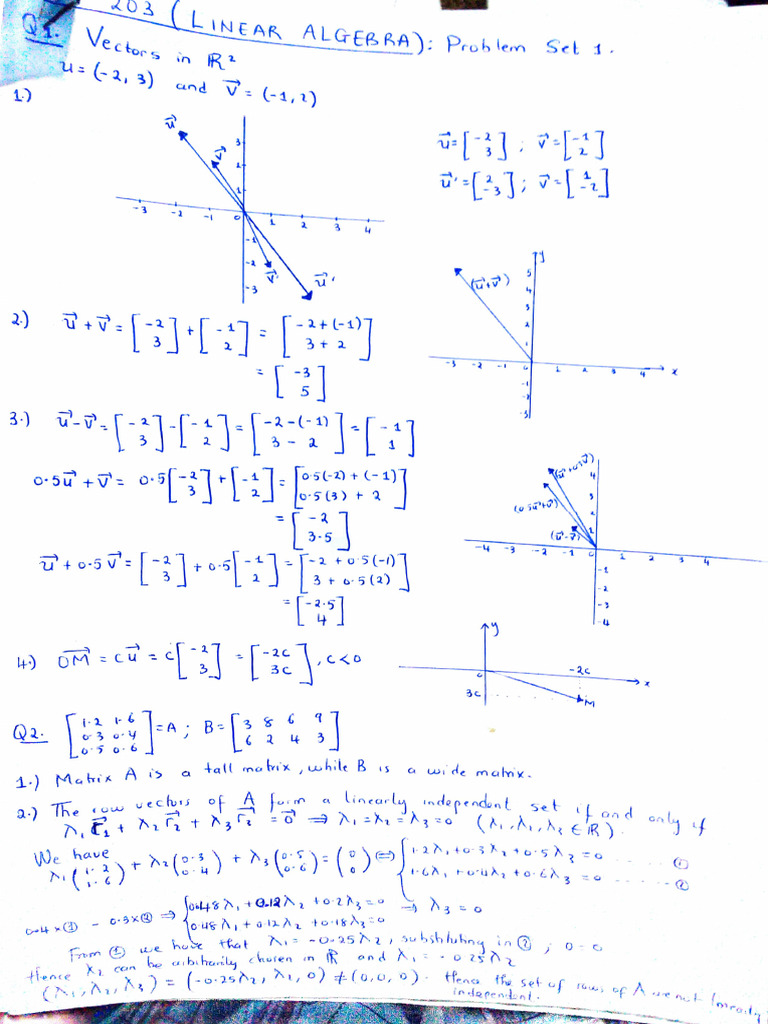 203 (LINEAR ALGEBRA): Problem Set 1.
Q1. Vectors in ℝ²
u = (-2, 3) and v⃗ = (-1, 2)
1.)
u⃗ = [-2 3] ; v⃗ = [-1 2]
u⃗' = [2 -3] ; v⃗ = [1 -2]
u⃗ v⃗ v⃗' u⃗'
3 2 1
-3 -2 -1 0 1 2 3 4
-1 -2 -3
y
(u⃗+v⃗)
5 4 3 2 1
-3 -2 -1 0 1 2 3 4 x
-1 -2 -3
2.) u⃗ + v⃗ = [-2 3] + [-1 2] = [-2+(-1) 3+2]
= [-3 5]
3.) u⃗ - v⃗ = [-2 3] - [-1 2] = [-2-(-1) 3-2] = [-1 1]
0.5u⃗ + v⃗ = 0.5[-2 3] + [-1 2] = [0.5(-2)+(-1) 0.5(3)+2]
= [-2 3.5]
u⃗ + 0.5v⃗ = [-2 3] + 0.5[-1 2] = [-2+0.5(-1) 3+0.5(2)]
= [-2.5 4]
(u⃗+0.5v⃗)
(0.5u⃗+v⃗)
(u⃗-v⃗)
4 3 2 1
-4 -3 -2 -1 0 1 2 3 4
-1 -2 -3 -4
4.) OM⃗ = cu⃗ = c[-2 3] = [-2c 3c], c<0
y
0 -2c x
3c M
Q2. [1.2 1.6 0.3 0.4 0.5 0.6] = A ; B = [3 8 6 9 6 2 4 3]
1.) Matrix A is a tall matrix, while B is a wide matrix.
2.) The row vectors of A form a linearly independent set if and only if
λ₁r⃗₁ + λ₂r⃗₂ + λ₃r⃗₃ = 0⃗ ⇒ λ₁=λ₂=λ₃=0 (λ₁,λ₂,λ₃ ∈ ℝ).
We have
λ₁(1.2 1.6) + λ₂(0.3 0.4) + λ₃(0.5 0.6) = (0 0) ⇔ { 1.2λ₁+0.3λ₂+0.5λ₃=0 ..... ①
1.6λ₁+0.4λ₂+0.6λ₃=0 ..... ②
0.4×① - 0.3×② ⇒ { 0.48λ₁+0.12λ₂+0.2λ₃=0 ⇒ λ₃=0
0.48λ₁+0.12λ₂+0.18λ₃=0
From ① we have that λ₁=-0.25λ₂, substituting in ② ; 0=0
Hence λ₂ can be arbitrarily chosen in ℝ and λ₁=-0.25λ₂
(λ₁,λ₂,λ₃) = (-0.25λ₂, λ₂, 0) ≠ (0,0,0). Hence the set of rows of A are not linearly
independent.